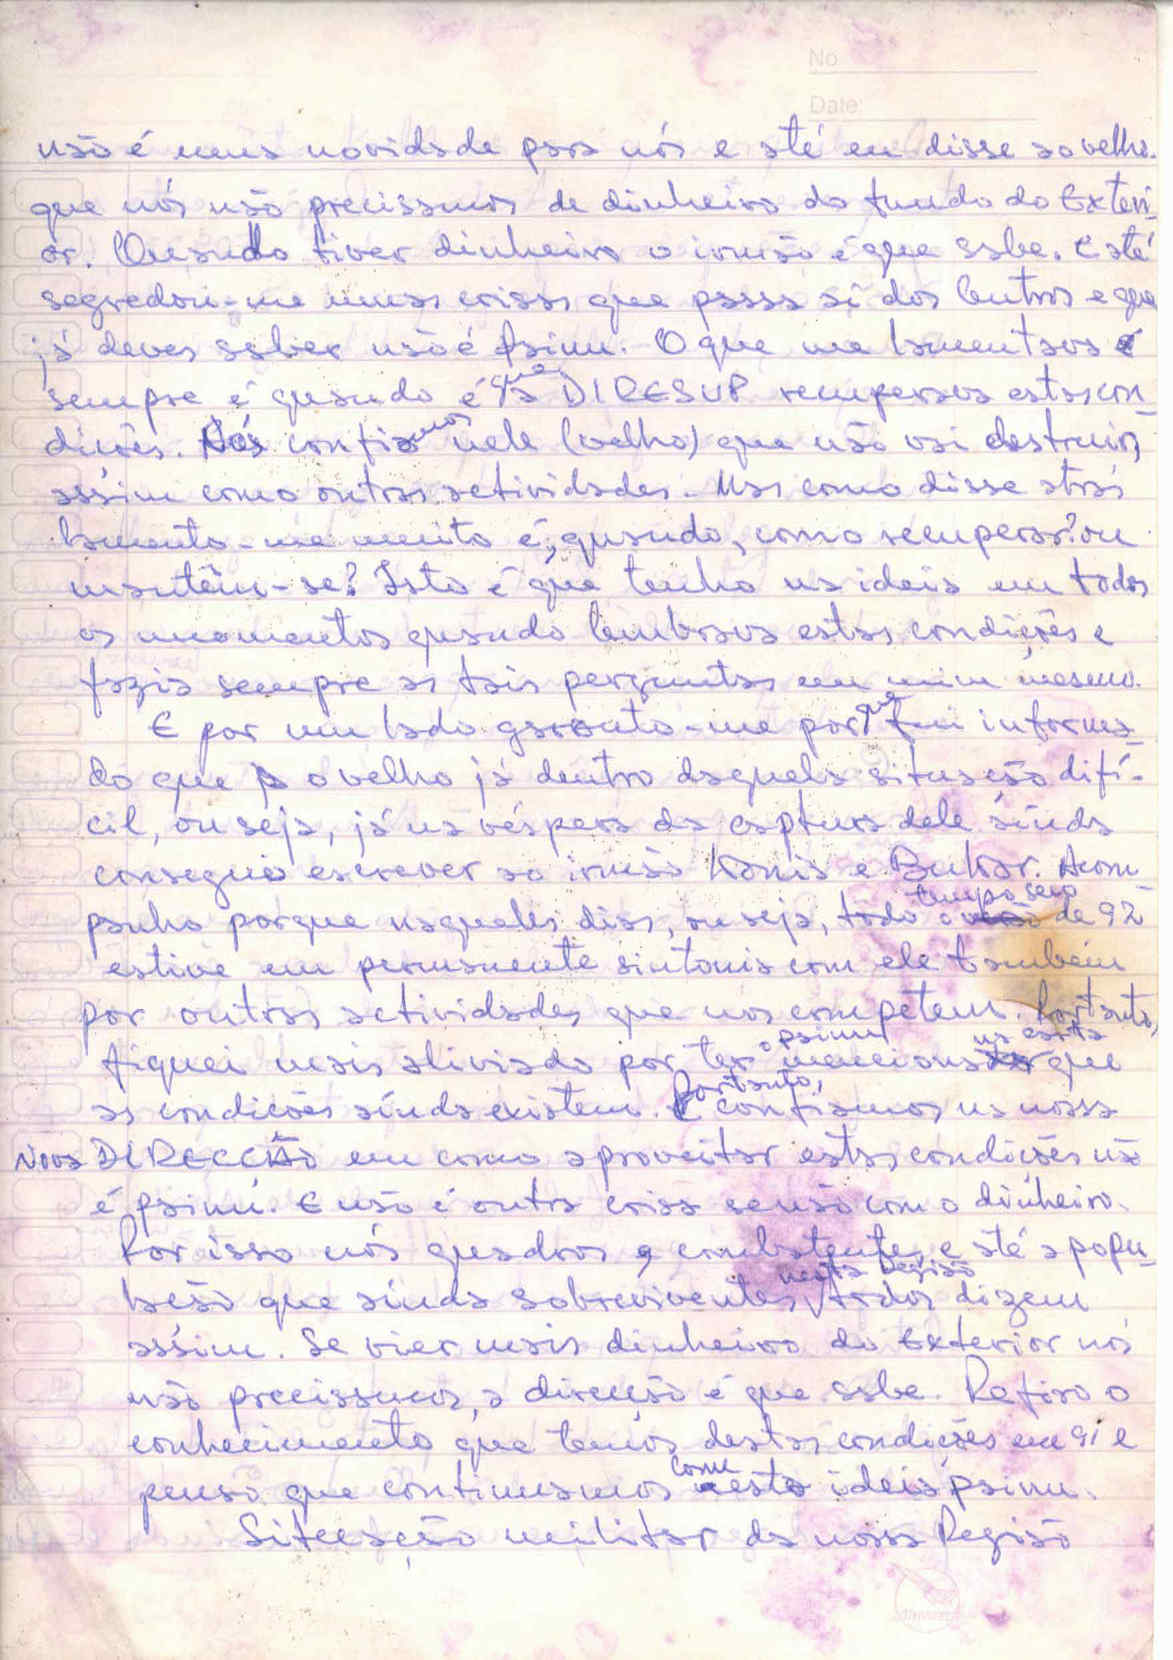 No
Date:
não é uma novidade para nós e até eu disse ao velho.
que nós não precisamos de dinheiro do fundo do Exteri-
or. Quando tiver dinheiro o irmão é que sabe. E até
segredou-me umas coisas que passa aí dos Outros e que
já deves saber não é painu. O que me lamentava é
sempre é quando é que a DIRESUP recuperava estas con-
dições. Nós confiamos nele (velho) que não vai destruir,
assim como outras actividades. Mas como disse atrás
lamento-me muito é, quando, como recuperar? ou
mantêm-se? Isto é que tenho na ideia em todos
os momentos quando lembrava estas condições e
fazia sempre as tais perguntas em mim mesmo.
E por um lado garanto-me porque fui informa-
do que o velho já dentro daquela situação difí-
cil, ou seja, já na véspera da captura dele ainda
conseguiu escrever ao irmão Konis e Bukar. Acom-
panho porque naqueles dias, ou seja, todo o tempo de 92
estive em permanente sintonia com ele também
por outras actividades que nos competem. Portanto,
fiquei mais aliviado por ter o painu mencionado na carta que
as condições ainda existem. Portanto, confiamos na nossa
Nova DIRECÇÃO em como aproveitar estas condições não
é painu. E não é outra coisa senão com o dinheiro.
Por isso nós quadros, combatentes e até a popu-
lação que ainda sobreviventes nesta Região todos dizem
assim. Se vier mais dinheiro do Exterior nós
não precisamos, a direcção é que sabe. Refiro o
conhecimento que temos destas condições em 91 e
penso que continuamos com esta ideia painu.
Situação militar da nossa Região